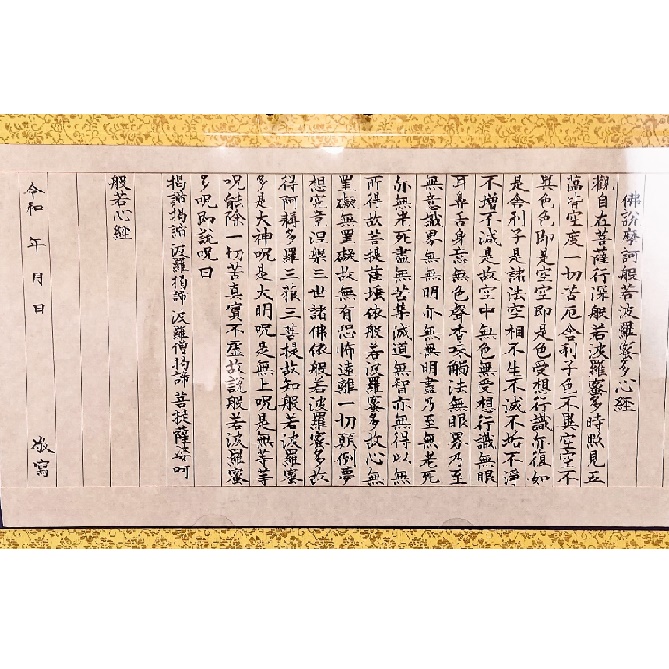 佛説摩訶般若波羅蜜多心経
觀自在菩薩行深般若波羅蜜多時照見五
蘊皆空度一切苦厄舎利子色不異空空不
異色色即是空空即是色受想行識亦復如
是舎利子是諸法空相不生不滅不垢不淨
不増不減是故空中無色無受想行識無眼
耳鼻舌身意無色聲香味觸法無眼界乃至
無意識界無無明亦無無明盡乃至無老死
亦無老死盡無苦集滅道無智亦無得以無
所得故菩提薩埵依般若波羅蜜多故心無
罣礙無罣礙故無有恐怖遠離一切顛倒夢
想究竟涅槃三世諸佛依般若波羅蜜多故
得阿耨多羅三藐三菩提故知般若波羅蜜
多是大神呪是大明呪是無上呪是無等等
呪能除一切苦真實不虚故説般若波羅蜜
多呪即説呪曰
掲諦掲諦波羅掲諦波羅僧掲諦菩提薩婆訶
般若心経
令和 年 月 日 敬寫